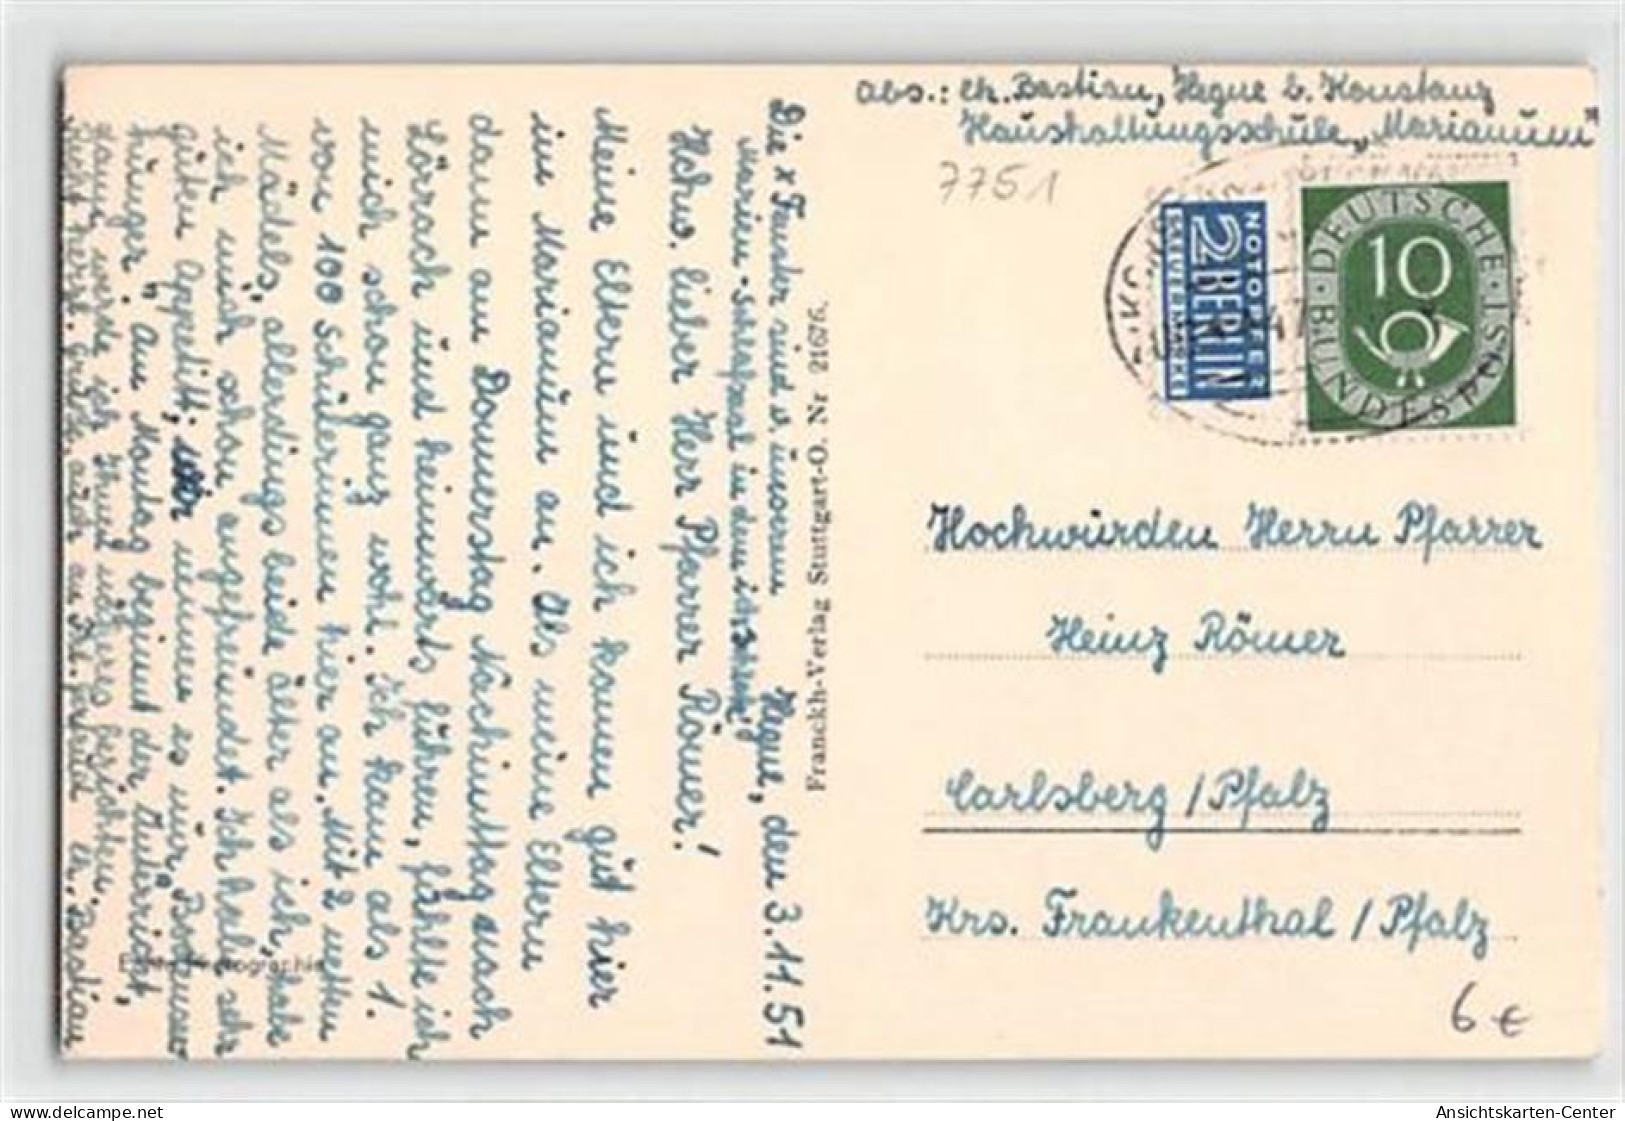 Abs.: Ch. Bastian, Hegne b. Konstanz
Haushaltungsschule „Marianum"
7751
NOTOPFER
2 BERLIN
STEUERMARKE
DEUTSCHE BUNDESPOST
10
Hochwürden Herrn Pfarrer
Heinz Römer
Carlsberg / Pfalz
Krs. Frankenthal / Pfalz
6 €
Franckh-Verlag Stuttgart-O. Nr 21676.
Die x Fenster sind v. unserem
Marien-Schlafsaal in dem ich schlafe!
Hegne, den 3.11.51
Hochw. lieber Herr Pfarrer Römer!
Meine Eltern und ich kamen gut hier
im Marianum an. Als meine Eltern
dann am Donnerstag Nachmittag nach
Lörrach und heimwärts fuhren, fühlte ich
mich schon ganz wohl. Ich kam als 1.
von 100 Schülerinnen hier an. Mit 2 netten
Mädels, allerdings beide älter als ich, habe
ich mich schon angefreundet. Ich habe sehr
guten Appetitt; nennen es nur
hunger". Am Montag beginnt der Unterricht,
dann werde ich Ihnen näheres berichten.
Recht herzl. Grüße, auch an Frl. Ch. Bastian
Echte Photographie
Ansichtskarten-Center
www.delcampe.net